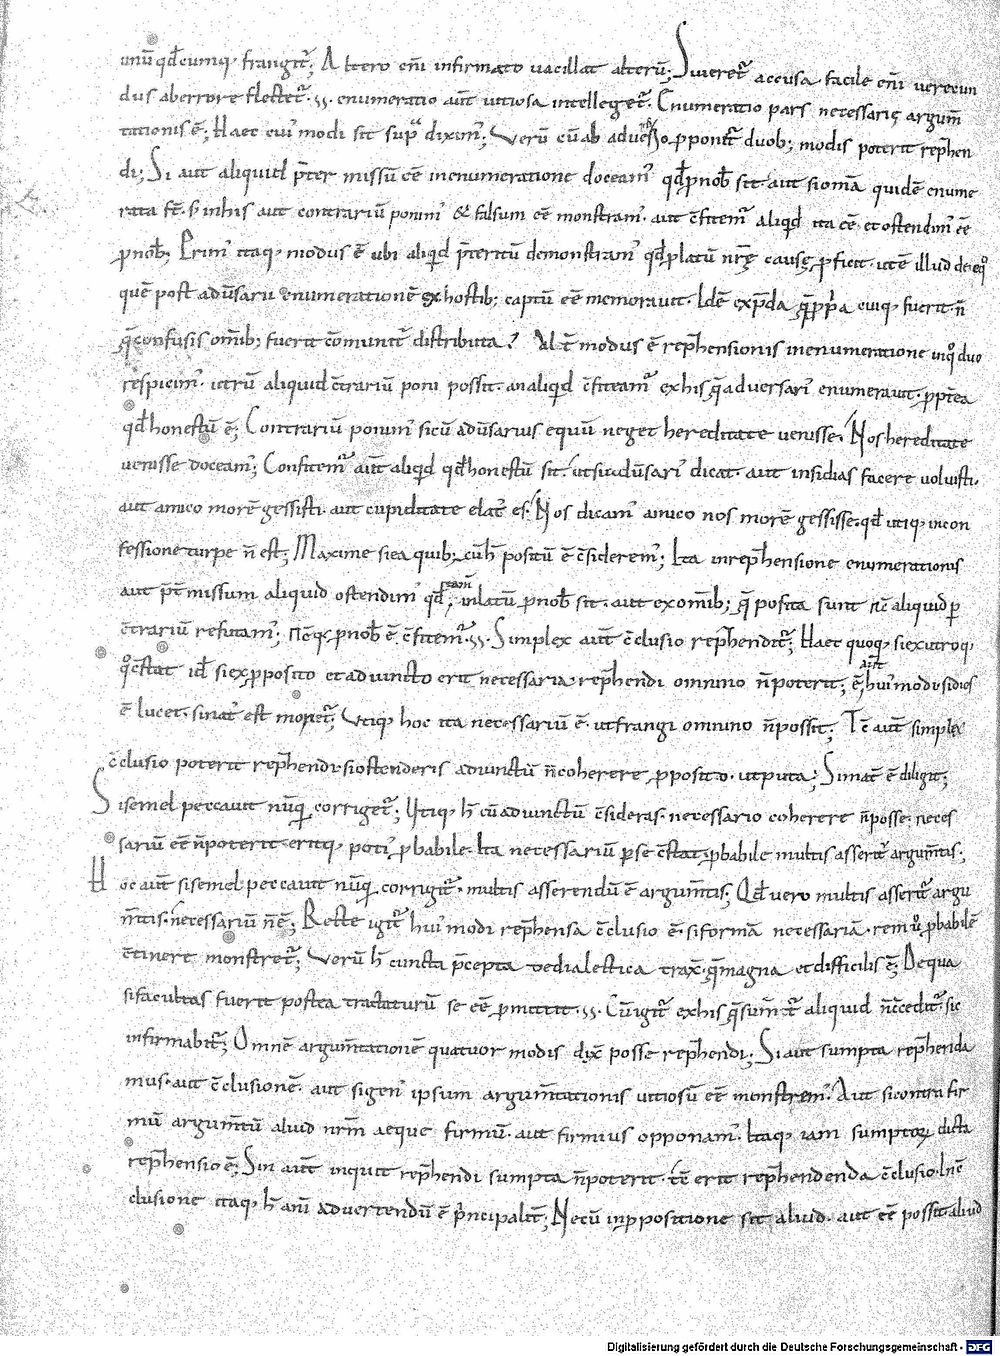 unū qđcumq; frangit᷒; Altero eñi infirmato vacillat alterū; Siueret᷒ accusa facile eñi verecun
dus aberrore flectet᷒. enumeratio aut̄ vitiosa intelleget᷒. Enumeratio pars necessarię argum̄
tationis ē; Haec cui᷒ modi sit supᵃ dixim᷒; Verū cū ab aduerso ꝓponit᷒ duob; modis poterit rep̄hen
di; Si aut aliquid p̄ter missū eē inenumeratione doceam᷒ qđ ꝓnoƀ sit. aut siomīa quidē enume
rata sē. s; inhis aut contrariū ponim᷒ & falsum eē monstram᷒. aut c̄fitem᷒ aliqid ita eē. et ostendim᷒ eē
ꝓnoƀ; Prim᷒ itaq; modus ē ubi aliqid p̄teritū demonstram᷒ qđ ꝓlatū nr̄ę causę ꝓficit. ut ē illud de eq̊
quē post adūsarii enumerationē ex hostib; captū eē memorauit. Idē exp̄da cuiq; fuerit. n̄
confusis om̄ib; fuerit c̄muniť distributa? Alt̄ modus ē rep̄hensionis inenumeratione duo
respicim᷒. utrū aliquid c̄trariū poni possit. an aliqid c̄fiteam᷒ ex his q̄ adversari᷒ enumerauit. ꝓpt̄ea
qđ honestū ē; Contrariū ponim᷒ sicū adūsarius equū neget hereditate uenisse. Nos hereditate
uenisse doceam᷒; Confitem᷒ aut̄ aliqid qđ honestū sit. ut siadūsari᷒ dicat. aut insidias facere voluisti.
aut amico morē gessisti. aut cupiditate elat᷒ es. Nos dicam᷒ amico nos morē gessisse. qđ utiq; incon
fessione turpe n̄ est; Maxime si ea quib; cūh̄ positū ē c̄siderem᷒; Ita inrep̄hensione enumerationis
aut p̄t̄missum aliquid ostendim᷒ qđ inlatū ꝓnoƀ sit. aut ex om̄ib; q̄ posita sunt aliquid ꝑ
c̄trariū refutam᷒; ꝓnoƀ ē c̄fitem᷒. Simplex aut̄ c̄clusio rep̄hendit᷒; Haec quoq; si ex utroq;
q̊ c̄stat id si ex ꝓposito et adiuncto erit necessaria rep̄hendi omnino n̄poterit; ē aut̄ hui᷒modi si dies
ē lucet. si nat᷒ est moriet᷒; Utiq; hoc ita necessariū ē. ut frangi omnino n̄possit; Tc̄ aut̄ simplex
c̄clusio poterit rep̄hendi si ostenderis adiunctū n̄coherere ꝓposito. ut puta; Si mat̄ ē diligit;
Si semel peccauit nūq; corriget᷒; Utiq; h̄ cū adiunctū c̄sideras. necessario coherere n̄posse. neces
sariū eē n̄poterit. eritq; poti᷒ ꝓbabile. Ita necessariū ꝑse c̄stat; ꝓbabile multis asserit᷒ argum̄tis;
Hoc aut̄ si semel peccauit nūq; corrigit᷒. multis asserendū ē argum̄tis; Qđ vero multis asserit᷒ argu
m̄tis. necessariū n̄ē; Recte igit᷒ hui᷒modi rep̄hensa c̄clusio ē. si formā necessariā. rem ꝓbabilē
c̄tinere monstret᷒; Verū h̄ cuncta p̄cepta dedialectica q̄ magna et difficilis ē; De qua
si facultas fuerit postea tractaturū se eē ꝓmittit. Cū igit᷒ ex his q̄ aliquid n̄c̄cedit᷒. sic
infirmabit᷒; Omnē argum̄tationē quatuor modis dix̄ posse rep̄hendi; Si aut sumpta rep̄henda
mus. aut c̄clusionē. aut si gen᷒ ipsum argum̄tationis vitiosū eē monstrem᷒. Aut si contra fir
mū argum̄tū aliud nr̄m aeque firmū. aut firmius opponam᷒. Itaq; iam sumptoꝝ dicta
rep̄hensio ē; Sin aut̄ inquit rep̄hendi sumpta n̄poterit. tc̄ erit rep̄hendenda c̄clusio. Inc̄
clusione itaq; h̄ anī advertendū ē principalit̄; Necū inꝓpositione sit aliud. aut eē possit aliud
Digitalisierung gefördert durch die Deutsche Forschungsgemeinschaft - DFG